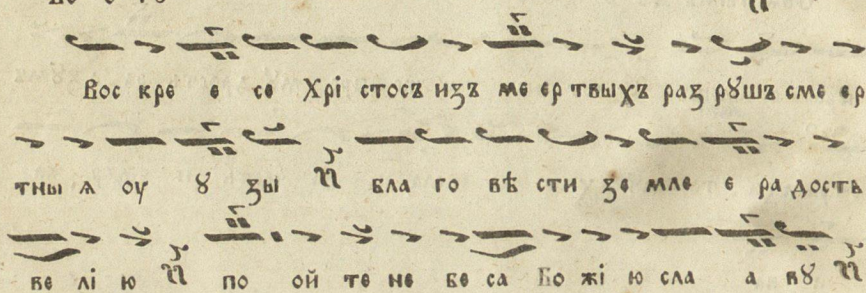 Вос кре е се Хрі стосъ изъ ме ер твыхъ раз рꙋшъ сме ер
тны ѧ оу ꙋ зы бла го вѣ сти зе мле е ра дость
ве лі ю по ой те не бе са Бо жі ю сла а вꙋ